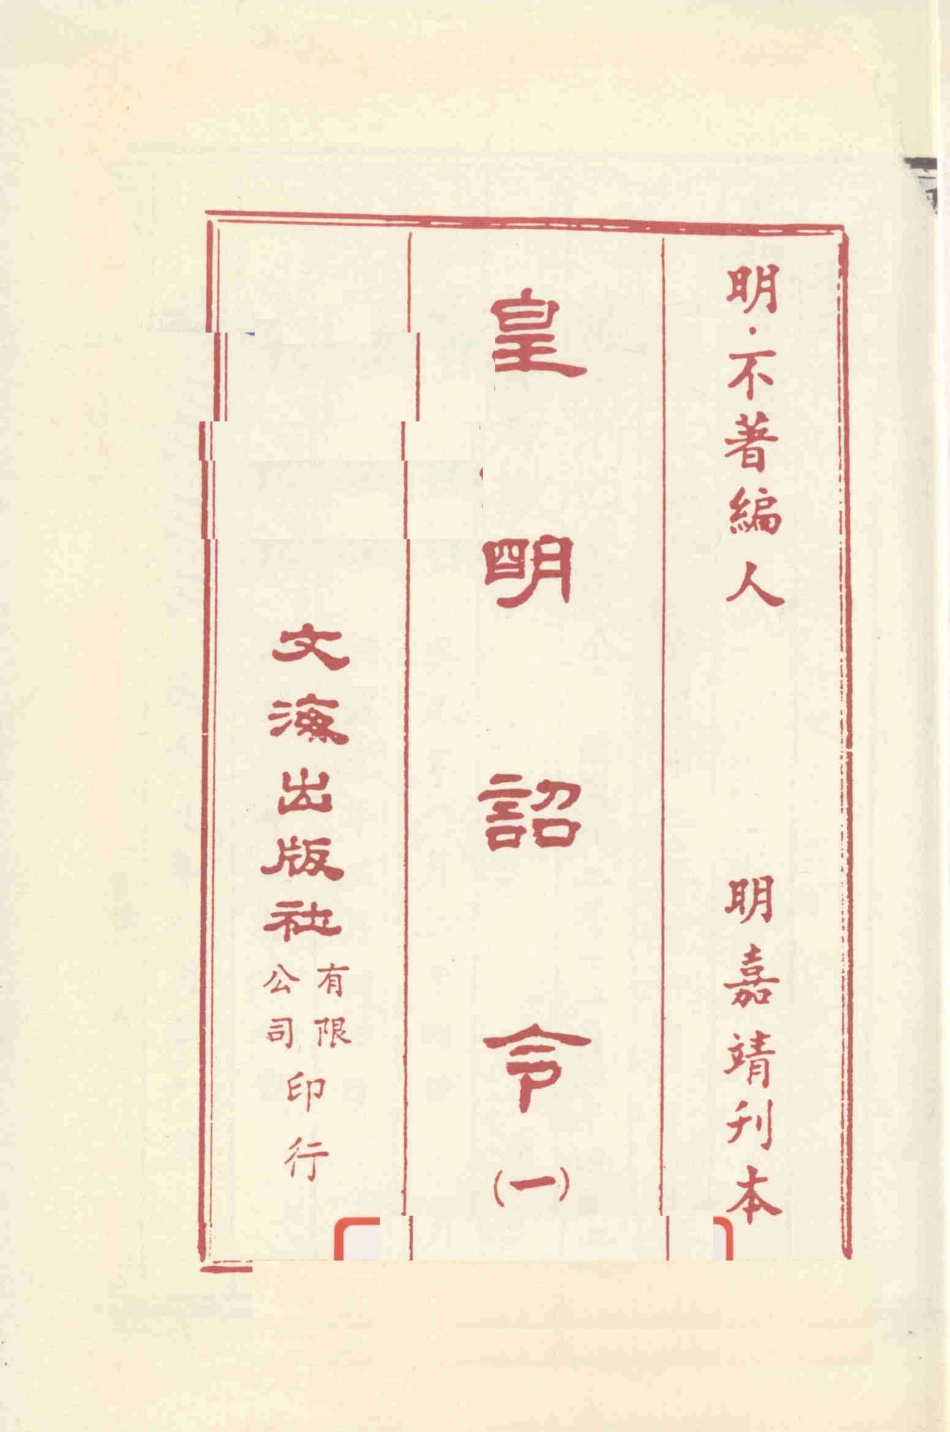 明·不著編人
明嘉靖刊本
皇明詔令(一)
文海出版社有限公司印行